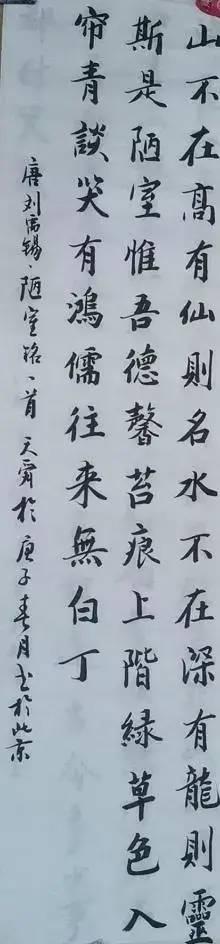 山不在高有仙則名水不在深有龍則靈
斯是陋室惟吾德馨苔痕上階緑草色入
帘青談笑有鴻儒往来無白丁
唐刘禹锡·陋室铭一首 天霁於庚子春月书於北京